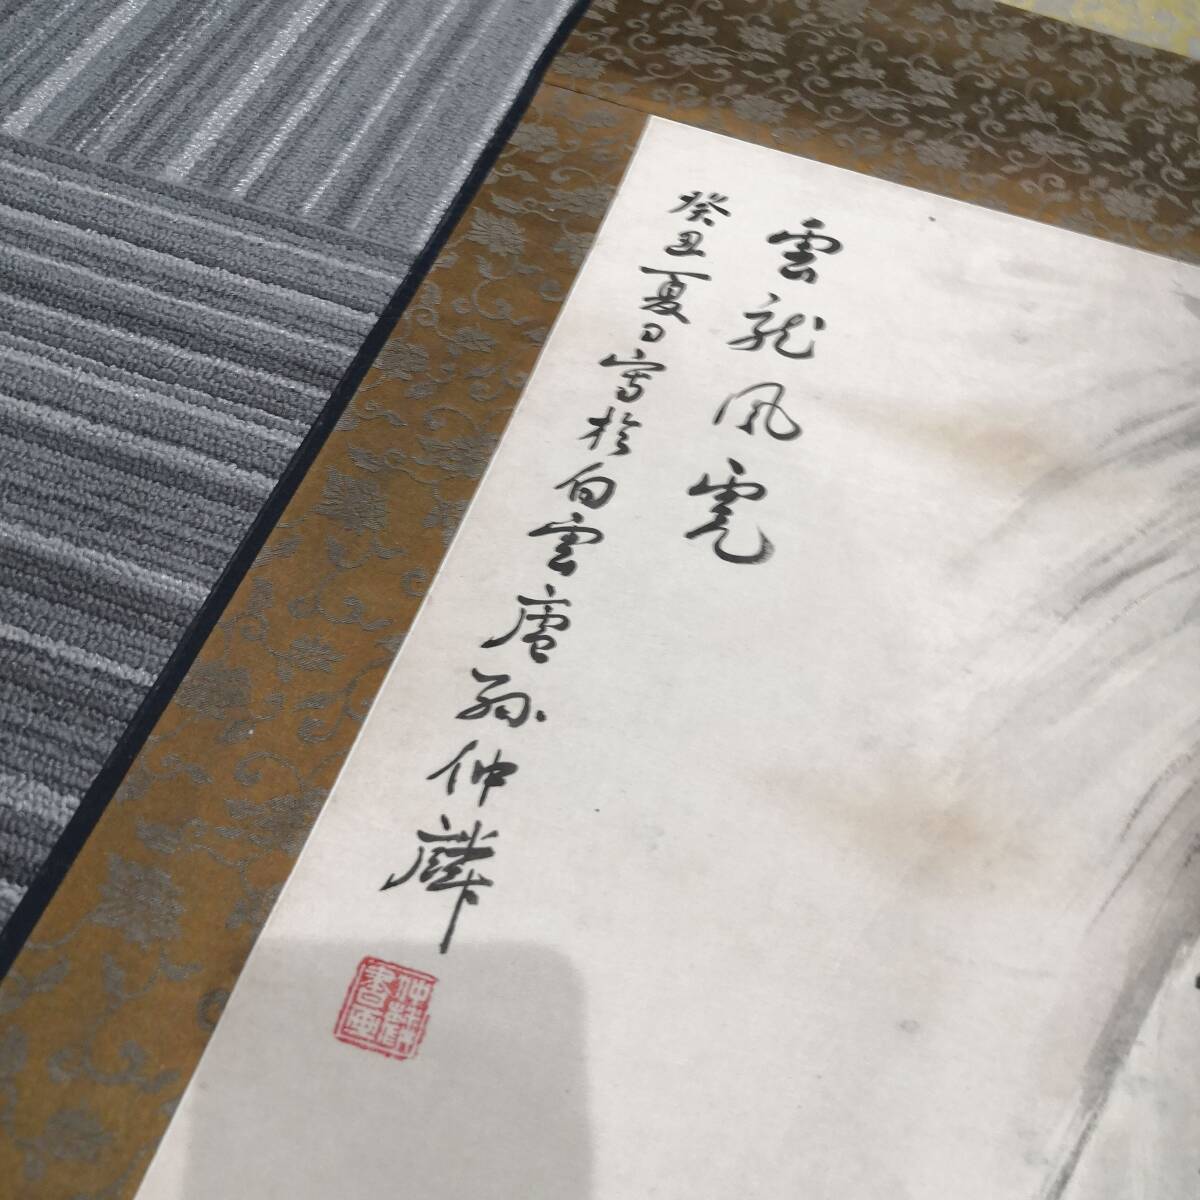 雲龍風虎
癸丑夏日寫於白雲廬孫仲麟
仲麟書畫